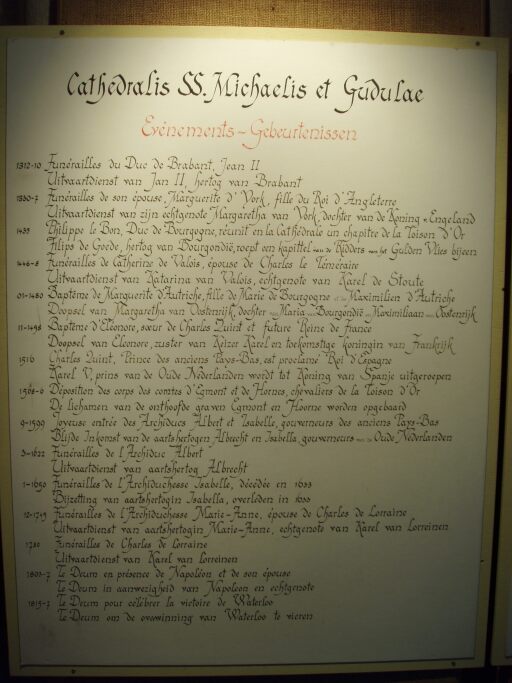 Cathedralis SS. Michaelis et Gudulae
Evénements - Gebeurtenissen
1312-10 Funérailles du Duc de Brabant, Jean II
Uitvaartdienst van Jan II, hertog van Brabant
1330-7 Funérailles de son épouse, Marguerite d'York, fille du Roi d'Angleterre
Uitvaartdienst van zijn echtgenote Margaretha van York, dochter van de Koning v. Engeland
1435 Philippe le Bon, Duc de Bourgogne, réunit en la Cathédrale un chapitre de la Toison d'Or
Filips de Goede, hertog van Bourgondië, roept een kapittel van de Ridders van het Gulden Vlies bijeen
1446-8 Funérailles de Catherine de Valois, épouse de Charles le Téméraire
Uitvaartdienst van Katarina van Valois, echtgenote van Karel de Stoute
01-1480 Baptême de Marguerite d'Autriche, fille de Marie de Bourgogne et de Maximilien d'Autriche
Doopsel van Margaretha van Oostenrijk, dochter van Maria van Bourgondië en Maximiliaan van Oostenrijk
11-1498 Baptême d'Eleonore, sœur de Charles Quint et future Reine de France
Doopsel van Eleonore, zuster van Keizer Karel en toekomstige Koningin van Frankrijk
1516 Charles Quint, Prince des anciens Pays-Bas, est proclamé Roi d'Espagne
Karel V, prins van de Oude Nederlanden wordt tot Koning van Spanje uitgeroepen
1568-6 Déposition des corps des comtes d'Egmont et de Hornes, chevaliers de la Toison d'Or
De lichamen van de onthoofde graven Egmont en Hoorne worden opgebaard
9-1599 Joyeuse entrée des Archiducs Albert et Isabelle, gouverneurs des anciens Pays-Bas
Blijde Inkomst van de aartshertogen Albrecht en Isabella, gouverneurs van de Oude Nederlanden
3-1622 Funérailles de l'Archiduc Albert
Uitvaartdienst van aartshertog Albrecht
1-1650 Funérailles de l'Archiduchesse Isabelle, décédée en 1633
Bijzetting van aartshertogin Isabella, overleden in 1633
12-1749 Funérailles de l'Archiduchesse Marie-Anne, épouse de Charles de Lorraine
Uitvaartdienst van aartshertogin Marie-Anne, echtgenote van Karel van Lorreinen
1780 Funérailles de Charles de Lorraine
Uitvaartdienst van Karel van Lorreinen
1803-7 Te Deum en présence de Napoléon et de son épouse
Te Deum in aanwezigheid van Napoleon en echtgenote
1815-7 Te Deum pour célébrer la victoire de Waterloo
Te Deum om de overwinning van Waterloo te vieren